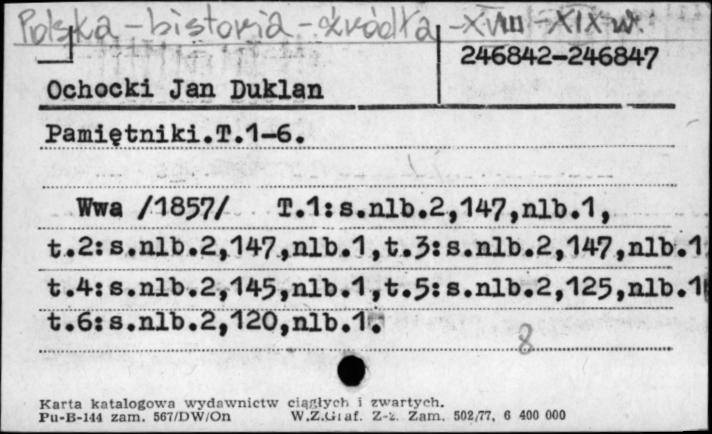 Polska - historia - źródła - XVIII - XIX w.
246842-246847
Ochocki Jan Duklan
Pamiętniki.T.1-6.
Wwa /1857/ T.1:s.nlb.2,147,nlb.1,
t.2:s.nlb.2,147,nlb.1,t.3:s.nlb.2,147,nlb.1
t.4:s.nlb.2,145,nlb.1,t.5:s.nlb.2,125,nlb.1
t.6:s.nlb.2,120,nlb.1.
8
Karta katalogowa wydawnictw ciągłych i zwartych.
Pu-B-144 zam. 567/DW/On W.Z.Graf. Z-z. Zam. 502/77, 6 400 000